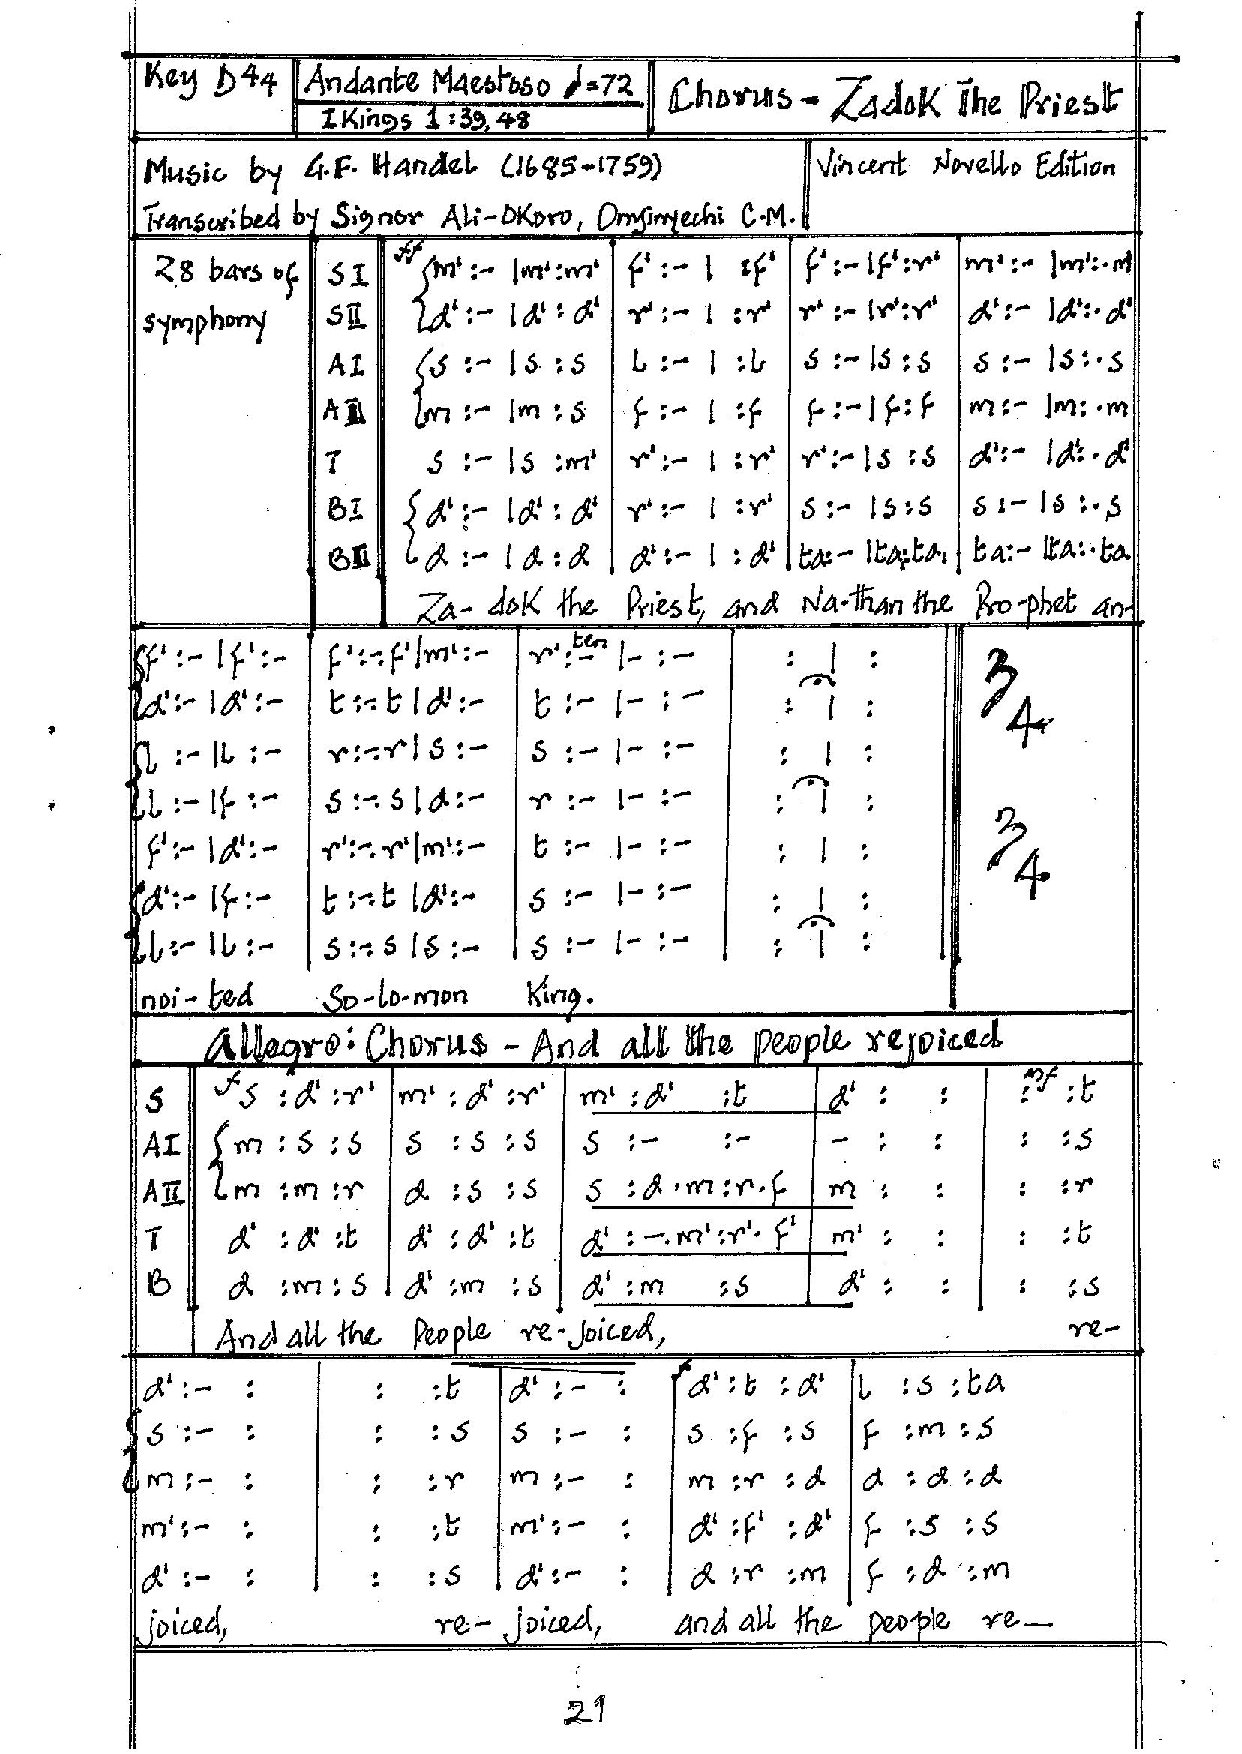 Key D 44 Andante Maestoso ♩=72 Chorus - Zadok The Priest
I Kings 1:39,48
Music by G.F. Handel (1685-1759) Vincent Novello Edition
Transcribed by Signor Ali-Okoro, C.M.
28 bars of symphony
SI ff {m':- |m':m' f':- | :f' f':-|f':r' m':- |m':.m'
SII {d':- |d':d' r':- | :r' r':-|r':r' d':- |d':.d'
AI {s :- |s :s l :- | :l s :-|s :s s :- |s :.s
AII {m :- |m :s f :- | :f f :-|f :f m :- |m :.m
T s :- |s :m' r':- | :r' r':-|s :s d':- |d':.d'
BI {d':- |d':d' r':- | :r' s :- |s :s s :- |s :.s
BII {d :- |d :d d':- | :d' ta:- |ta:ta ta:- |ta:.ta
Za- dok the Priest, and Na-than the Pro-phet an-
{f':- |f':- f':-.f'|m':- r':- ten |- :- : | : 3/4
{d':- |d':- t:-.t|d':- t :- |- :- : | :
{l :- |l :- r:-.r|s :- s :- |- :- : | :
{l :- |f :- s:-.s|d :- r :- |- :- : | : 3/4
f':- |d':- r':-.r'|m':- t :- |- :- : | :
{d':- |f :- t:-.t|d':- s :- |- :- : | :
{l :- |l :- s:-.s|s :- s :- |- :- : | :
noi-ted So-lo-mon King.
Allegro: Chorus - And all the people rejoiced
S f s :d' :r' m' :d' :r' m' :d' :t d' : : : mf :t
AI {m :s :s s :s :s s :- :- - : : : :s
AII {m :m :r d :s :s s :d.m:r.f m : : : :r
T d' :d' :t d' :d' :t d' :-.m':r'.f' m' : : : :t
B d :m :s d' :m :s d' :m :s d' : : : :s
And all the People re-joiced, re-
d':- : : :t d':- : f d':t :d' l :s :ta
{s :- : : :s s :- : s :f :s f :m :s
{m :- : : :r m :- : m :r :d d :d :d
m':- : : :t m':- : d':f' :d' f :s :s
d':- : : :s d':- : d :r :m f :d :m
joiced, re- joiced, and all the people re-
21